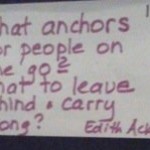 hat anchors
or people on
he go?
not to leave
hind & carry
ong?
Edith Ack